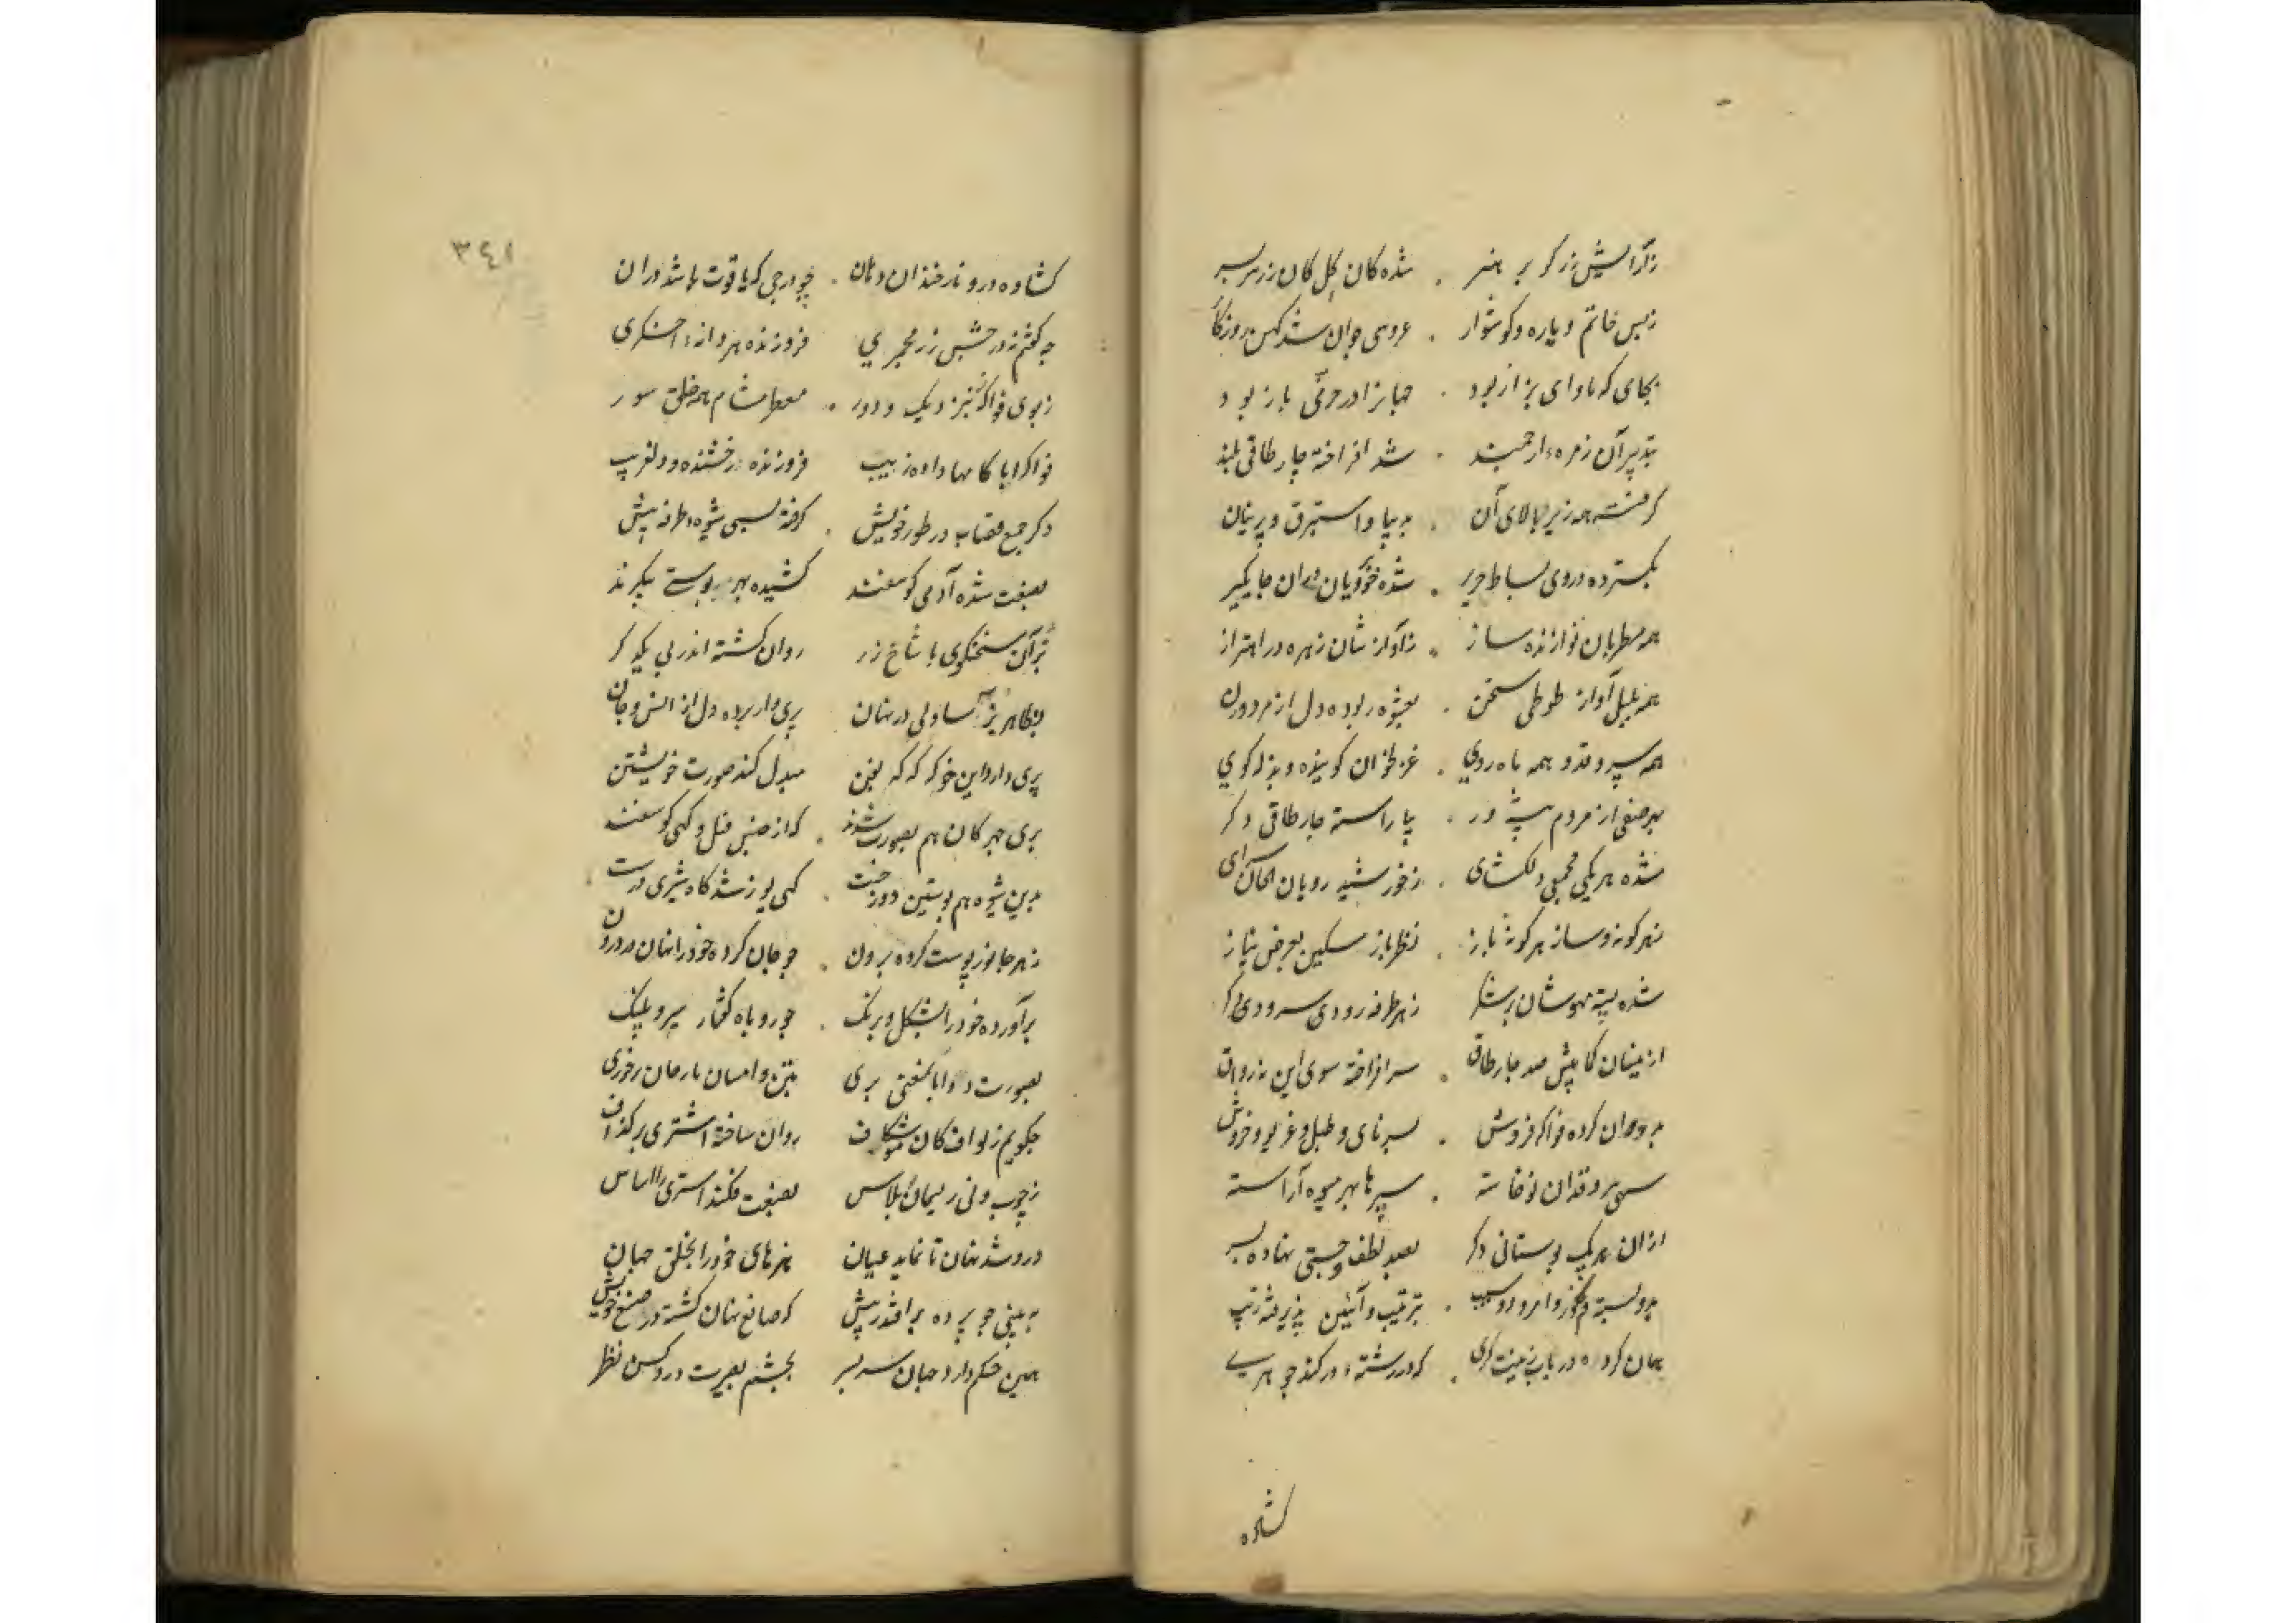 زآرایش زرگر پر هنر . شده کان گل کان زر سربسر
زبس خاتم و یاره و گوشوار . عروس جوان شد کهن روزگار
بجای که ماوای بزاز بود . جهانرا در خرمی باز بود
بتدبیر آن زمره ارجمند . شد افراخته چارطاقی بلند
گرفته همه زیر و بالای آن . بدیبا و استبرق و پرنیان
بگسترده در وی بساط حریر . شده خوبرویان در آن جایگیر
همه مطربان نوازنده ساز . زآوازشان زهره در اهتزاز
همه بلبل آواز طوطی سخن . بعشوه ربوده دل از مرد و زن
همه سرو قد و همه ماه روی . غزلخوان گوینده و بذله گوی
بهر صنفی از مردم پیشه ور . بیاراسته چارطاقی دگر
شده هر یکی مجمعی دلکشای . زخورشید رویان الحان سرای
زهر گونه و ساز هر گونه باز . نظرباز مسکین بعرض نیاز
شده پسته مهوشان پر شکر زهر طرفه رودی سرودی دگر
ازینسان کمابیش صد چارطاق . سرافراخته سوی این نه رواق
کرده فواکه فروش . بسرنای و طبل و غریو و خروش
سهی سرو قدان نوخاسته . سپرها بهر میوه آراسته
از آن هر یک بوستانی دگر بصد لطف و چستی نهاده بسر
و امرود و سیب . بترتیب و آئین پذیرفته زیب
در باب زینت گری . که در رشته در کند جوهری
کشاده
٣٤١
کشاده درو نار خندان دهان . چو درجی که یاقوت باشد در آن
زر مجمری فروزنده هر دانه اخگری
زبوی فواکه بنزدیک و دور . معطر مشام همه خلق سور
فواکه ایا کامها داده زیب فروزنده درخشنده و دلفریب
دگر جمع قصاب در طور خویش . گرفته بسی شیوه طرفه پیش
بصنعت شده آدمی گوسفند کشیده بهر پوستی پیکرند
سخنگوی با شاخ زر روان گشته اندر پی یکدگر
بظاهر بز آسا ولی در نهان پری وار برده دل از انس و جان
پری دارد این خو که گه گه بفن مبدل کند صورت خویشتن
پری چهرگان هم بصورت شدند . که از جنس فیل و گهی گوسفند
بدین شیوه هم پوستین دوز چست . گهی یوز شد گاه شیری درست .
زهر جانور پوست کرده برون . چو جان کرده خود را نهان در درون
برآورده خود را بشکل و برنگ . چو روباه کفتار ببر و پلنگ
بصورت دد اما بمعنی پری
چگویم ز لوافکان شگرف روان ساخته اشتری برگزاف
زچوب و نی و ریسمان و پلاس بصنعت فکند اشتری را اساس
درو شد نهان تا نماید عیان هنرهای خود را بخلق جهان
به بینی چو پرده برافتد زپیش که صانع نهان گشته در صنع خویش
همین حکم دارد جهان سر بسر بچشم بصیرت درو کن نظر